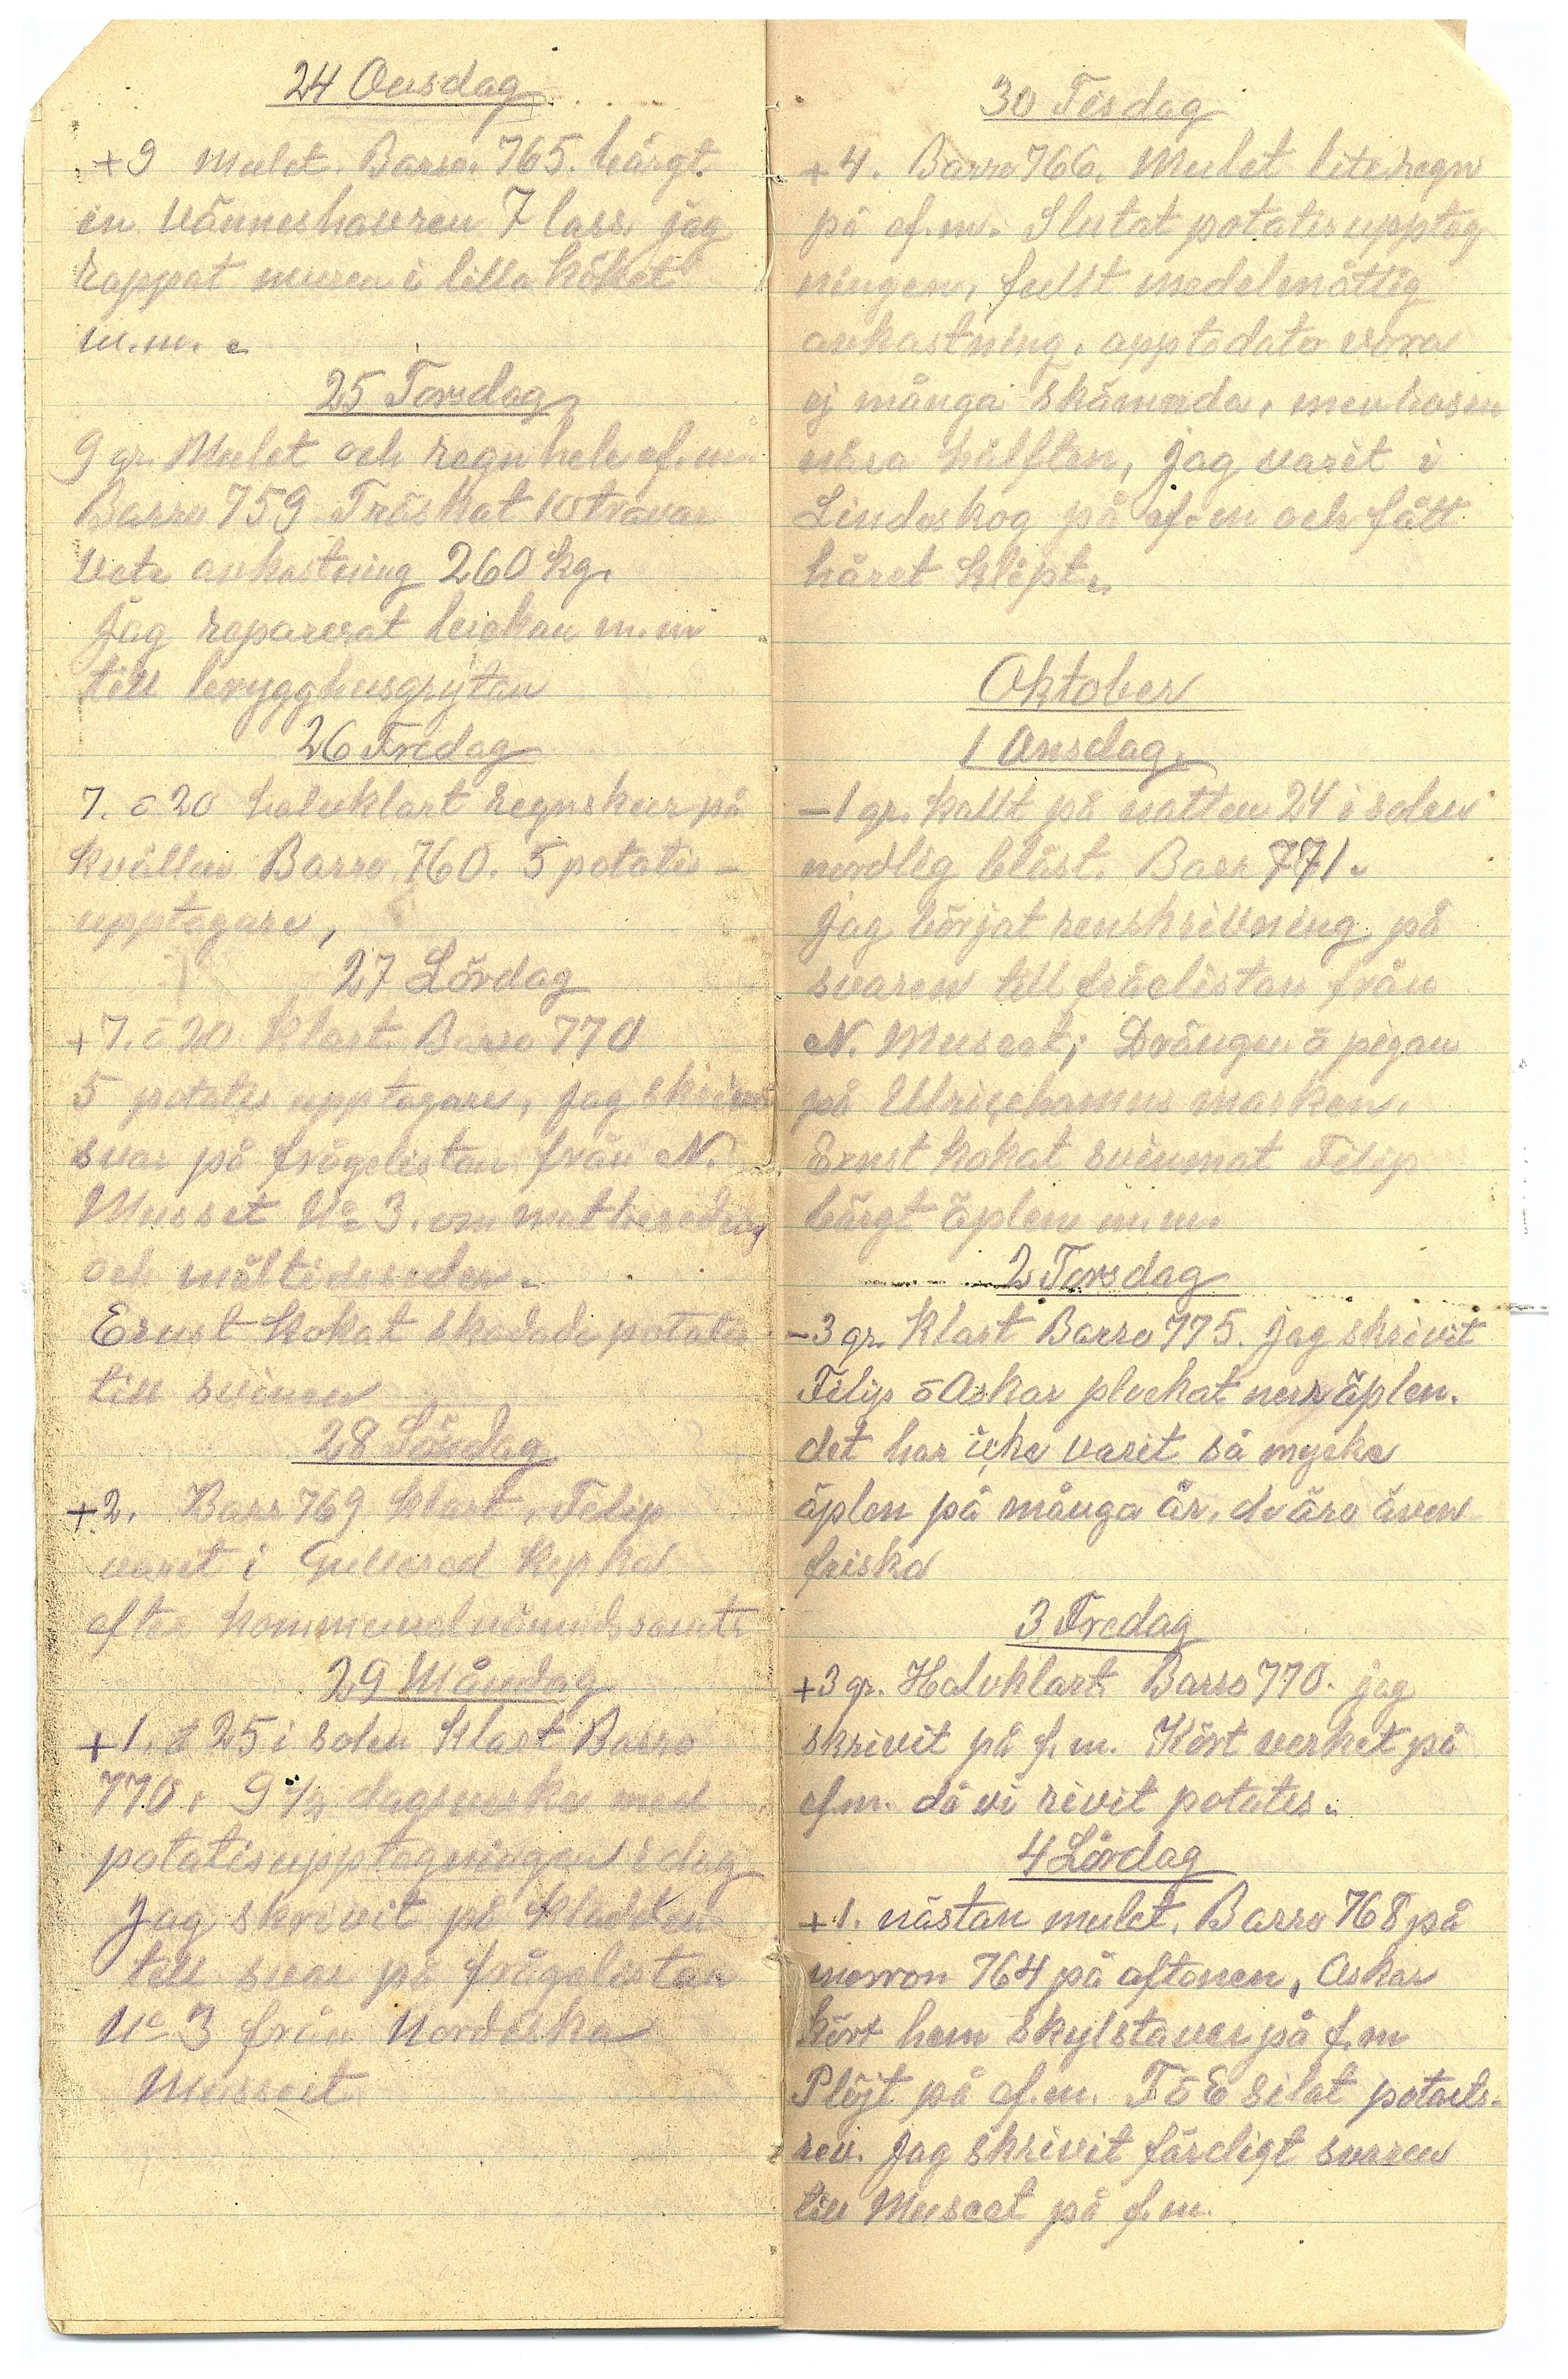 24 Onsdag
+9 mulet. Barro. 765. bärgt.
in vänneshavren 7 lass. jag
rappat muren i lilla köket
m.m.
25 Torsdag
9 gr. Mulet och regn hele ef.m.
Barro 759 Tröskat 10 travar
Vete avkastning 260 kg.
Jag reparerat luckan m.m
till brygghusgrytan
26 Fredag
7. o 20 halvklart regnskur på
kvällen Barro 760. 5 potatis-
upptagare,
27 Lördag
+7. o 20 klart. Barro 770
5 potatis upptagare, jag skrivit
svar på frågelistan från N.
Museet No 3. om matberedning
och måltidsseder.
Ernst kokat skadade potatis
till svinen
28 Söndag
+2. Barr 769 klart, Filip
varit i Gullered kyrka
efter kommunalnämndssamtr
29 Måndag
+1. o 25 i solen klart Barro
770. 9 1/2 dagsverke med
potatisupptagningen idag
Jag skrivit på kladden
till svar på frågelistan
No 3 från Nordiska
Musset
30 Tisdag
+4. Barro 766. Mulet lite regn
på ef.m. Slutat potatisupptag
ningen, fullt medelmåttig
avkastning. upptodato vora
ej många skämnda, men
nära hälften, jag varit i
Lindeskog på ef.m och fått
håret klipt.
Oktober
1 Onsdag.
-1 gr. kallt på natten 24 i solen
nordlig blåst. Barr 771.
Jag börjat renskrivning på
svaren till fråelistan från
N. Museet; Drängen o pigan
på Ulricehamns marken.
Ernst kokat svinmat Filip
bärgt äplen m.m.
2 Torsdag
-3 gr. Klart Barro 775. jag skrivit
Filip o Oskar plockat nerr äplen.
det har icke varit så mycke
äplen på många år. de äro även
friska
3 Fredag
+3 gr. Halvklart. Barro 770. jag
skrivit på f.m. Kört verket på
ef.m. då vi rivit potates.
4 Lördag
+1. nästan mulet. Barro 768 på
morron 764 på aftonen, Oskar
kört hem skylstaver på f.m
Plöjt på ef.m. F o E silat potaits-
rev. Jag skrivit färdigt svaren
till Museet på f.m.